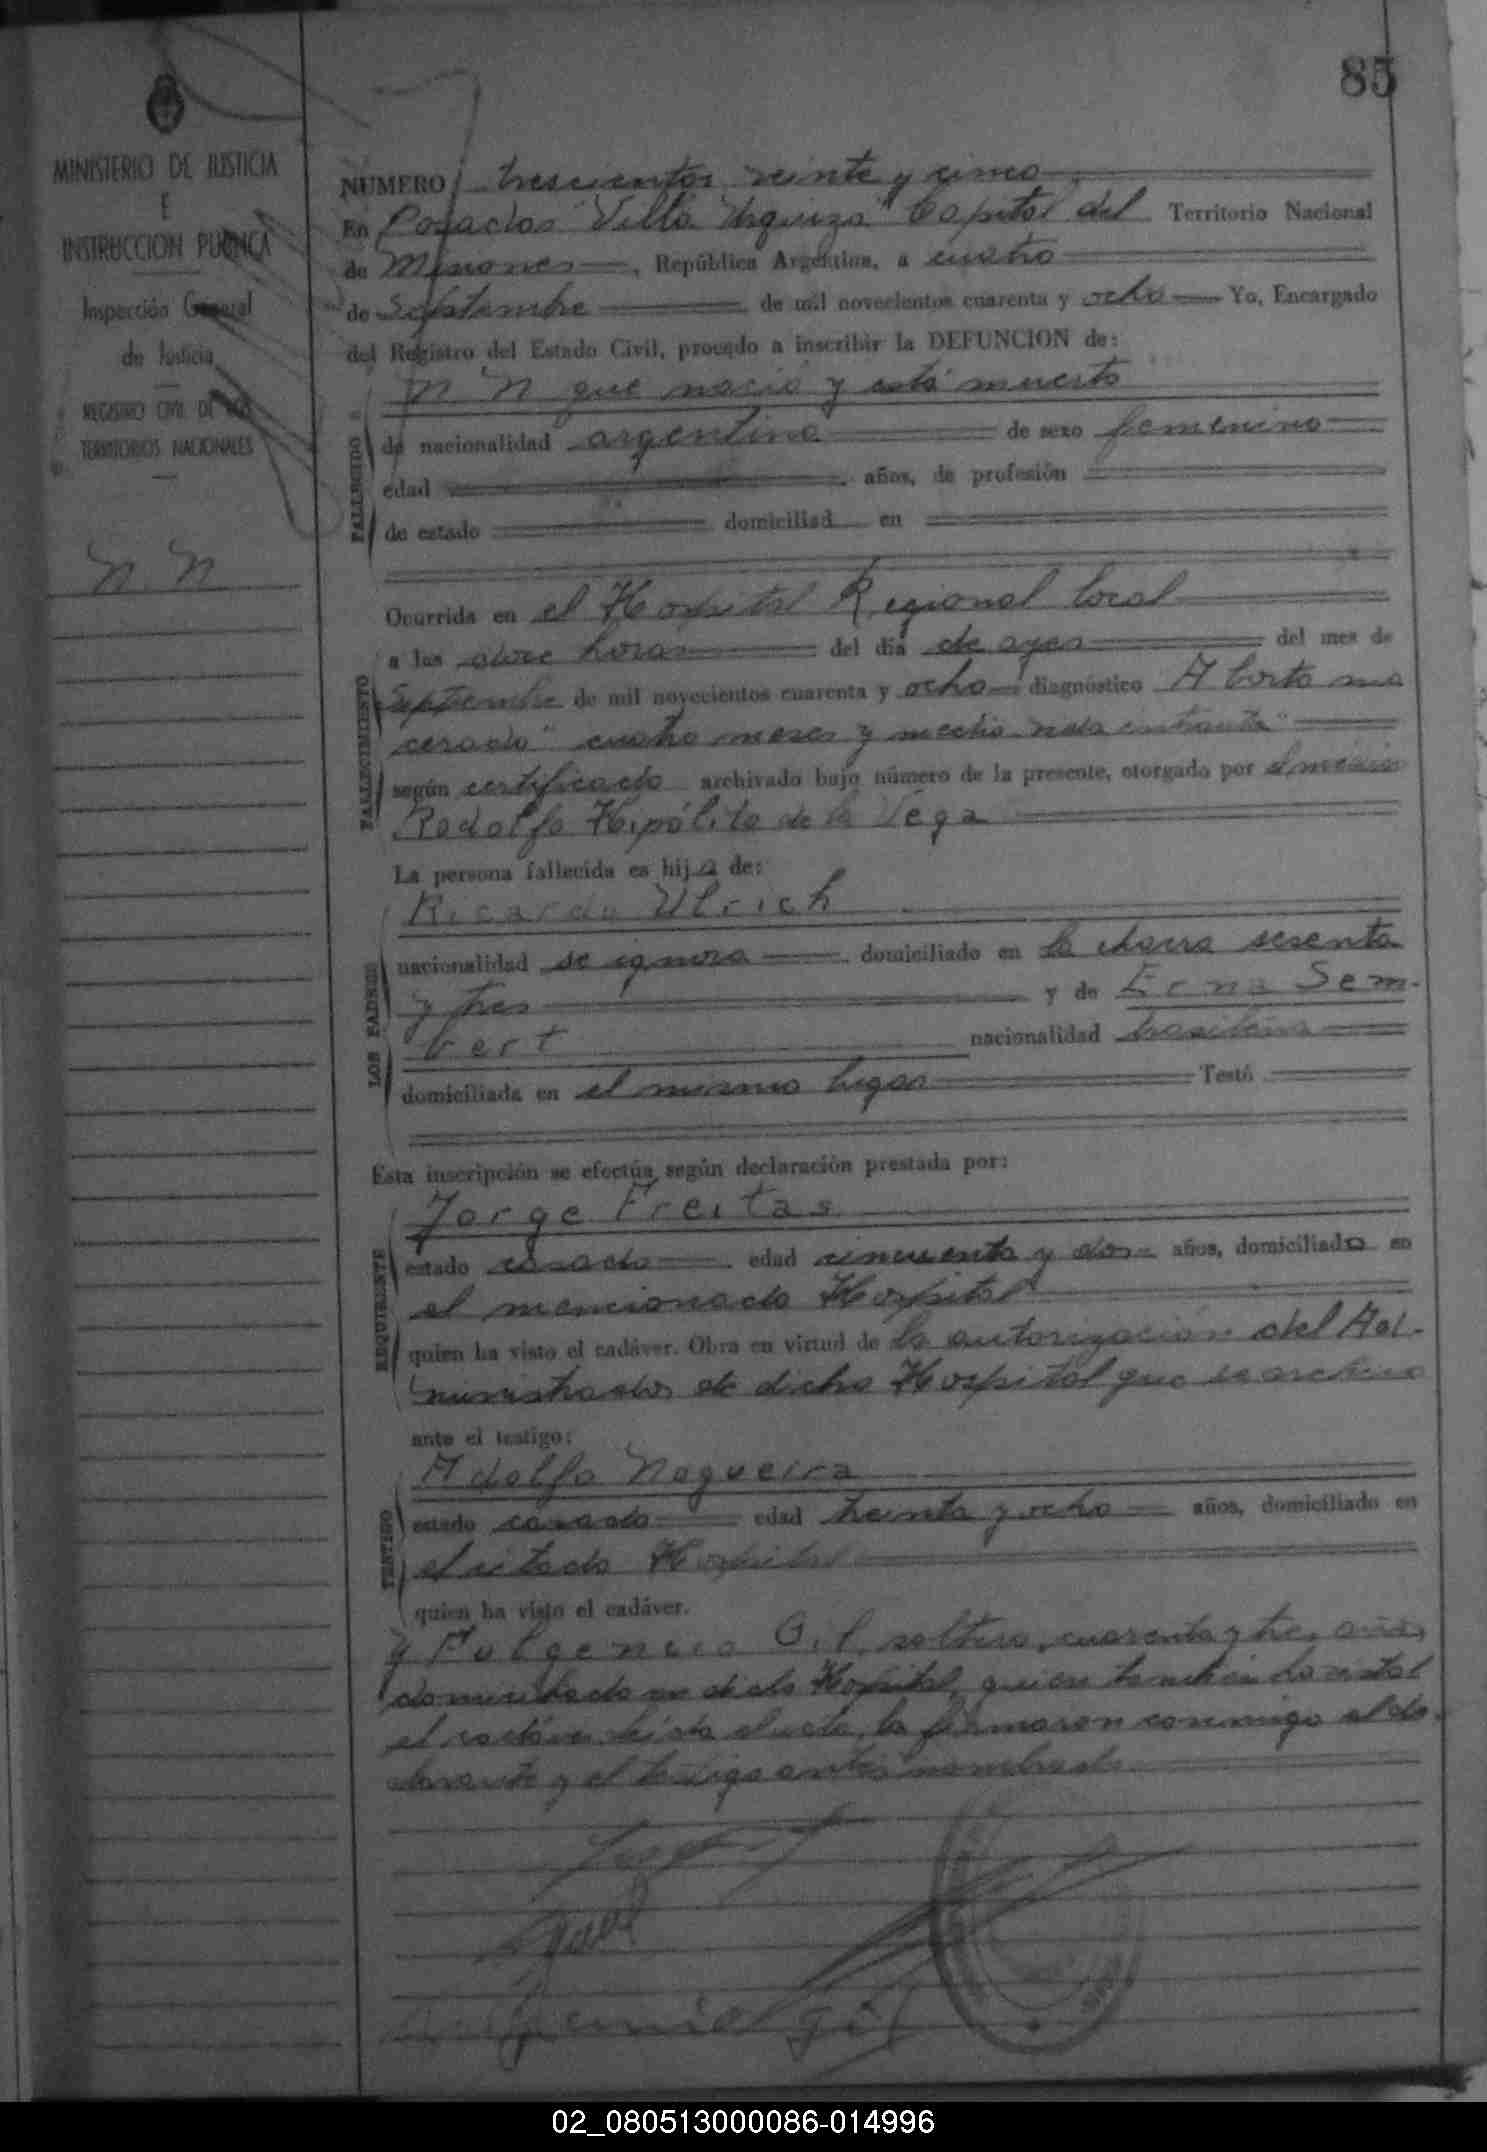 85
MINISTERIO DE JUSTICIA
E
INSTRUCCION PUBLICA
Inspección General
de Justicia
REGISTRO CIVIL DE LOS
TERRITORIOS NACIONALES
N. N
NUMERO trescientos veinte y cinco
En Posadas "Villa Urquiza" Capital del Territorio Nacional
de Misiones, República Argentina, a cuatro
de Septiembre de mil novecientos cuarenta y ocho Yo, Encargado
del Registro del Estado Civil, procedo a inscribir la DEFUNCION de:
N N que nació y está muerto
FALLECIDO
de nacionalidad argentina de sexo femenino
edad años, de profesión
de estado domiciliad en
FALLECIMIENTO
Ocurrida en el Hospital Regional local
a las doce horas del día de ayer del mes de
Septiembre de mil novecientos cuarenta y ocho diagnóstico "Aborto ma
cerado" cuatro meses y medio vida intrauta"
según certificado archivado bajo número de la presente, otorgado por el médico
Rodolfo Hipólito de la Vega
La persona fallecida es hija de:
LOS PADRES
Ricardo Ulrich
nacionalidad se ignora domiciliado en la chacra sesenta
y tres y de Erna Sem-
bert nacionalidad brasileña
domiciliada en el mismo lugar Testó
Esta inscripción se efectúa según declaración prestada por:
REQUIRENTE
Jorge Freitas
estado casado edad cincuenta y dos años, domiciliado en
el mencionado Hospital
quien ha visto el cadáver. Obra en virtud de la autorización del Ad-
ministrador de dicho Hospital que se archiva
ante el testigo:
TESTIGO
Adolfo Nogueira
estado casado edad treinta y ocho años, domiciliado en
el citado Hospital
quien ha visto el cadáver.
y Fulgencio Gil, soltero, cuarenta y tres años,
domiciliado en dicho Hospital, quien también ha visto
el cadáver. Leída el acta, la firmaron conmigo el de-
clarante y el testigo antes nombrado
Gil
02_080513000086-014996